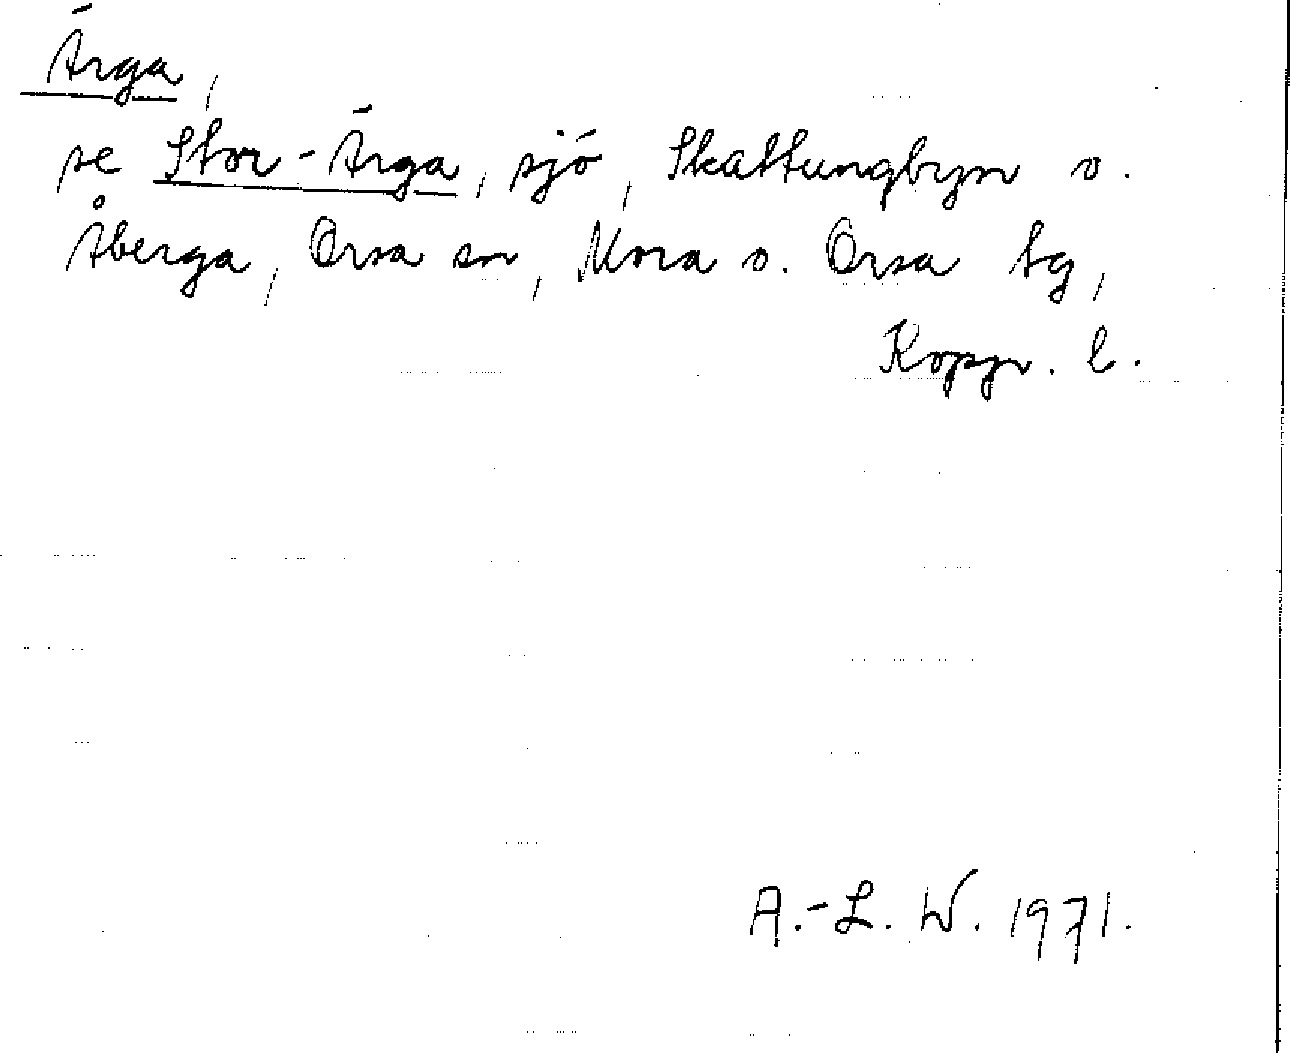 Ärga,
se Stor-Ärga, sjö, Skattungbyn o.
Åberga, Orsa sn, Mora o. Orsa tg,
Koppr. l.
A.-L. W. 1971.